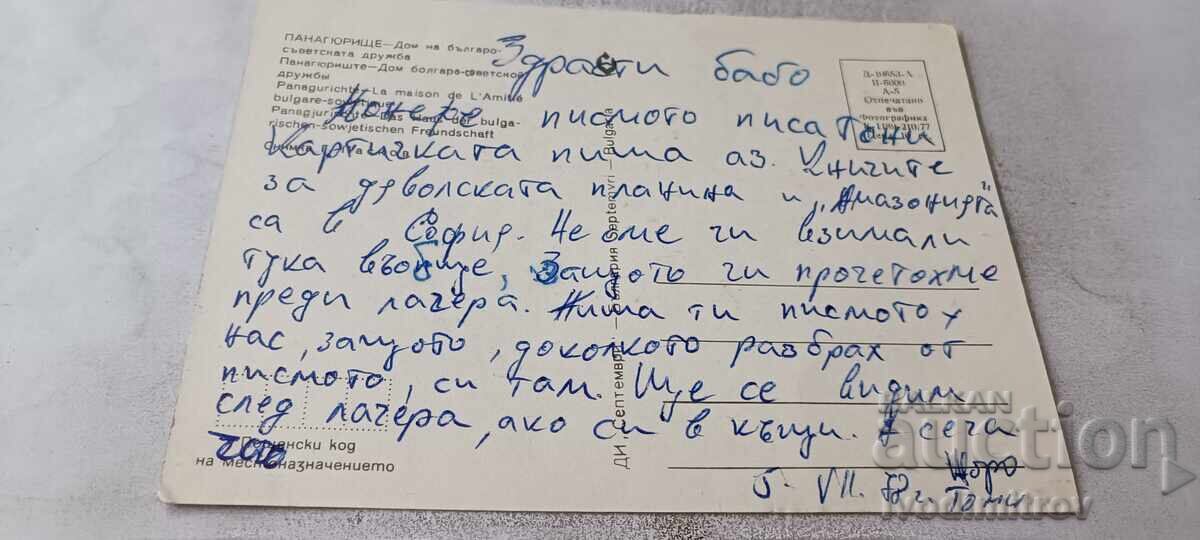 ПАНАГЮРИЩЕ — Дом на българо-
съветската дружба
Панагюриште — Дом болгаро-советской
дружбы
Panagurichte — La maison de L'Amitié
bulgare-sovietique
Panagjurischte — Das Haus der bulga-
rischen-sowjetischen Freundschaft
Д-10653-А
II-6000
А-5
Отпечатано
във
Фотографика
Здрасти бабо
понеже писмото писа Тони
картичката пиша аз. Книгите
за дяволската планина и „Амазонидта"
са в София. Не сме ги взимали
тука въобще, защото ги прочетохме
преди лагера. Пиша ти писмото у
нас, защото, доколкото разбрах от
писмото, си там. Ще се видим
след лагера, ако си в къщи. А сега
Жоро
5. VII. 78 г. Тони
ДИ „Септември" — България Septemvri — Bulgaria
Пощенски код
на местоназначението
BALKAN
auction
ivodimitrov